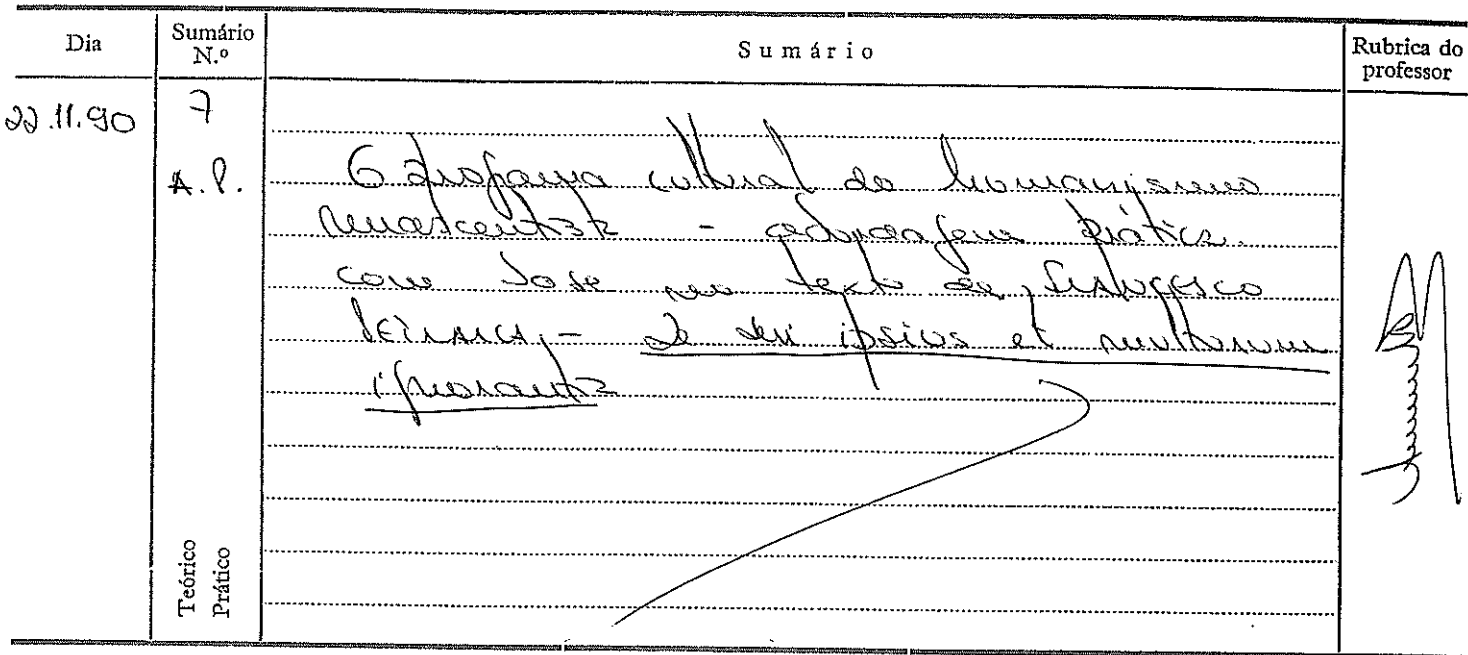 Dia
Sumário N.º
Sumário
Rubrica do professor
22.11.90
7
A.P.
O programa cultural do humanismo
renascentista - abordagem prática
com base no texto de Francesco
PETRARCA, - De sui ipsius et multorum
ignorantia
Teórico
Prático